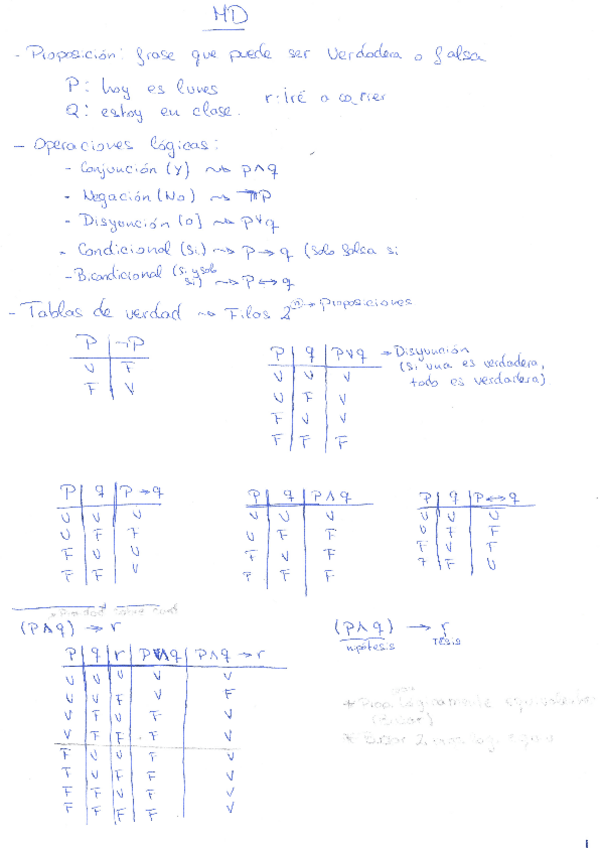 MD
- Proposición: frase que puede ser verdadera o falsa
P: hoy es lunes
r: iré a correr
Q: estoy en clase.
- Operaciones lógicas:
- Conjunción (Y) ⇝ p∧q
- Negación (No) ⇝ ¬P
- Disyunción (o) ⇝ P∨q
- Condicional (si) ⇝ P→q (solo falsa si
- Bicondicional (si y solo si) ⇝ P↔q
- Tablas de verdad ⇝ Filas 2ⁿ → Proposiciones
P | ¬P
V | F
F | V
P | q | P∨q → Disyunción
(si una es verdadera,
todo es verdadera)
V | V | V
V | F | V
F | V | V
F | F | F
P | q | P→q
V | V | V
V | F | F
F | V | V
F | F | V
P | q | P∧q
V | V | V
V | F | F
F | V | F
F | F | F
P | q | P↔q
V | V | V
V | F | F
F | V | F
F | F | V
(P∧q) → r
P | q | r | P∧q | P∧q → r
V | V | V | V | V
V | V | F | V | F
V | F | V | F | V
V | F | F | F | V
F | V | V | F | V
F | V | F | F | V
F | F | V | F | V
F | F | F | F | V
(P∧q) → r
hipótesis Tésis
lógicamente
(Buscar)
* Buscar 2
1